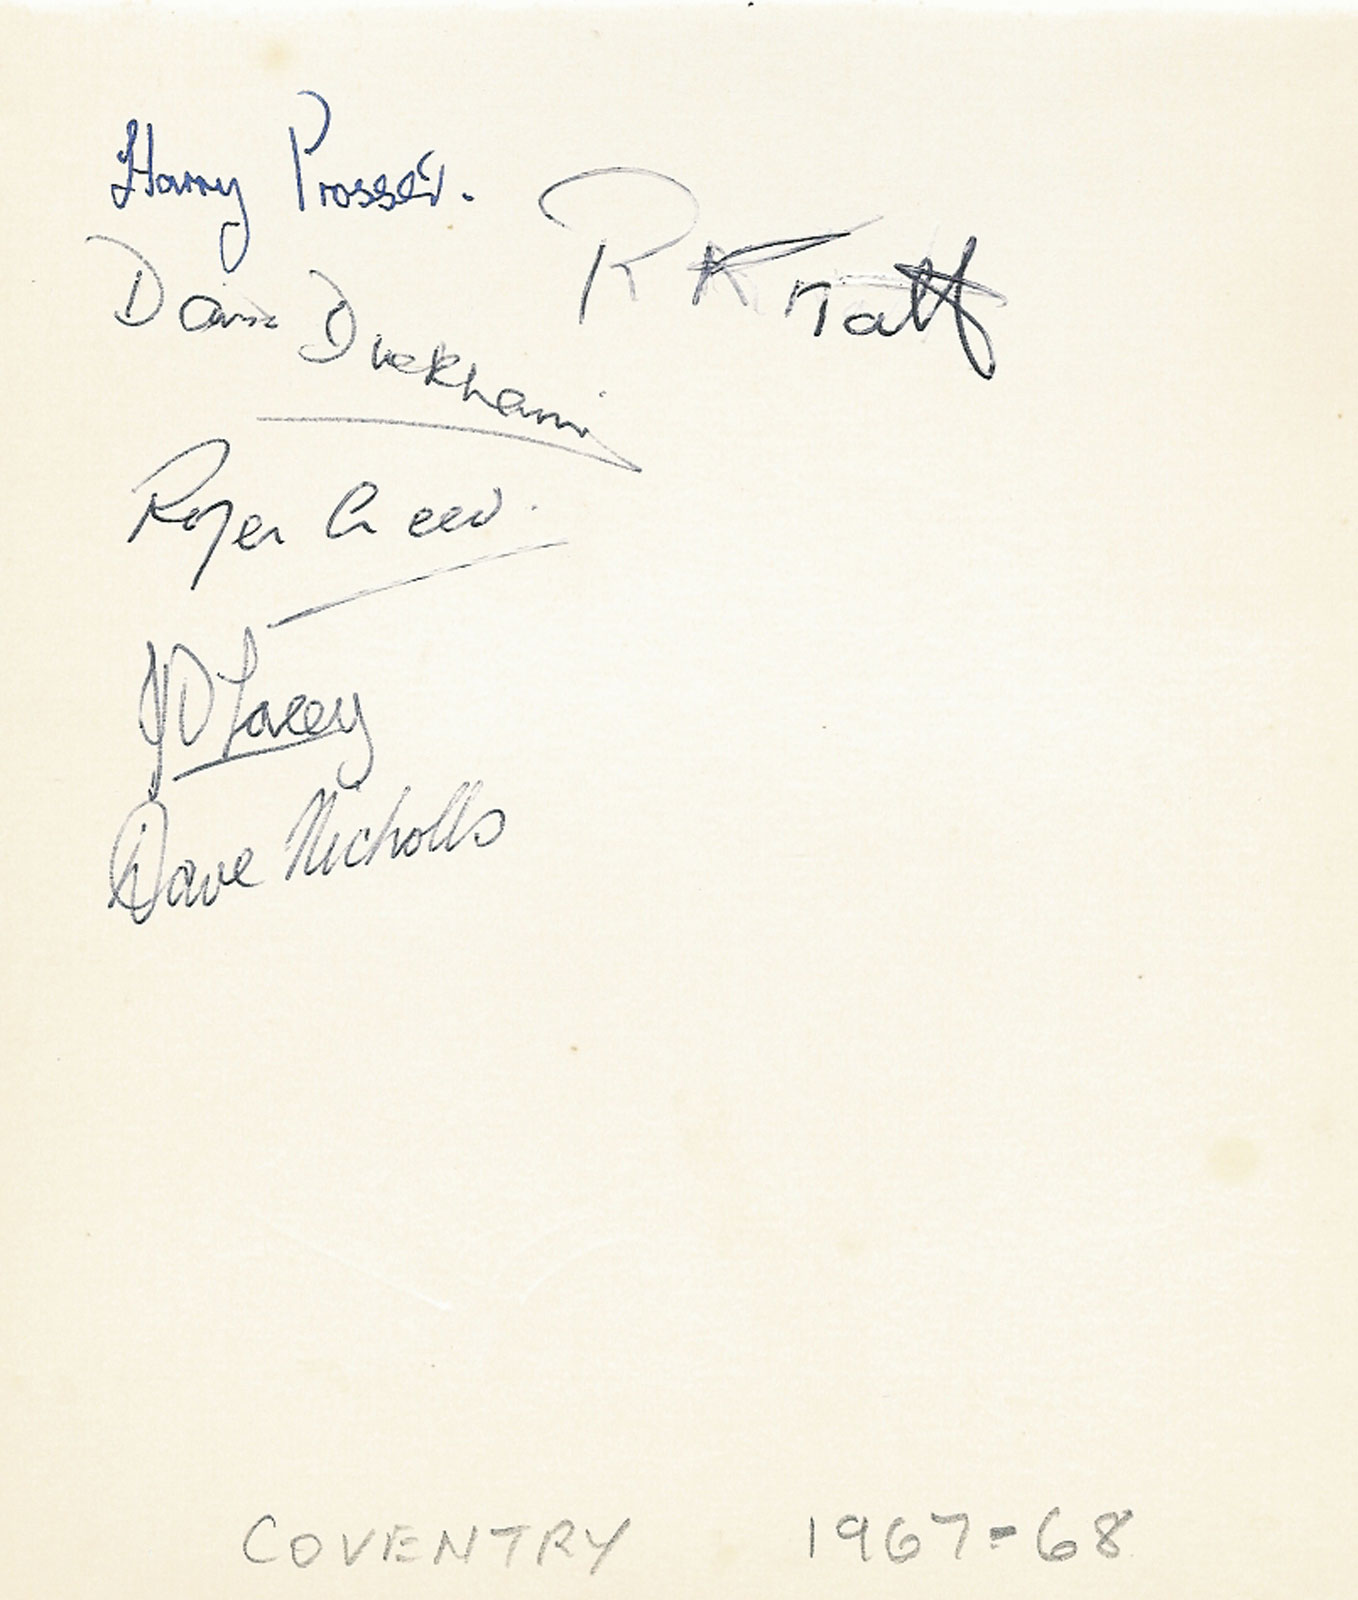 Harry Prosser.
David Duckham
Roger Creed.
Lacey
Dave Nicholls
COVENTRY 1967-68